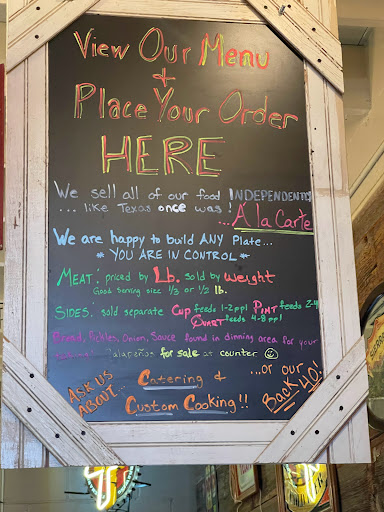 View Our Menu
+
Place Your Order
HERE
We sell all of our food INDEPENDENTLY
... like Texas once was!
... A la Carte
We are happy to build ANY Plate...
* YOU ARE IN CONTROL *
MEAT: priced by Lb. sold by weight
Good Serving size 1/3 or 1/2 lb.
SIDES: sold separate Cup feeds 1-2 ppl PINT feeds 2-4
QUART feeds 4-8 ppl
Bread, Pickles, Onion, Sauce found in dinning area for your
Jalapeños for sale at counter
ASK US ABOUT...
Catering &
Custom Cooking!!
...or our
BACK 40!